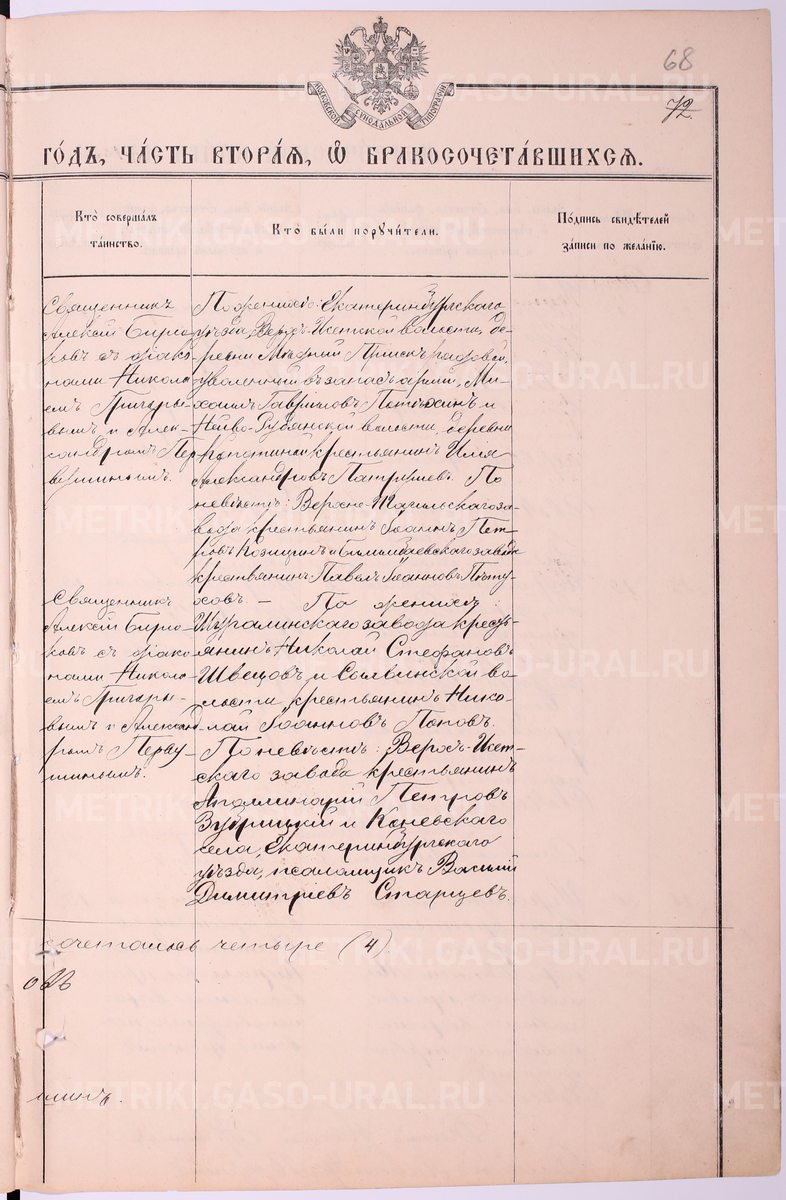 68
72.
МОСКОВСКОЙ СѴНОДАЛЬНОЙ ТИПОГРАФІИ
ГО́ДЪ, ЧА́СТЬ ВТОРА́Я, Ѡ҆ БРАКОСОЧЕТА́ВШИХСЯ.
Кто̀ соверша́лъ
та́инство.
Кто̀ бы́ли поручи́тели.
По́дпись свидѣ́телей
за́писи по жела́нїю.
Священникъ
Алексій Бирю-
ковъ съ діако-
нами Никола-
емъ Григорье-
вымъ и Алек-
сандромъ Пер-
вушинымъ.
По женихѣ: Екатеринбургскаго
уѣзда, Верхъ-Исетской волости, де-
ревни Мѣдный Пріискъ рядовой,
уволенный въ запасъ арміи, Ми-
хаилъ Гавріиловъ Потѣхинъ и
Нейво-Рудянской волости, деревни
крестьянинъ Илія
Александровъ Патрушевъ. По
невѣстѣ: Верхне-Тагильскаго за-
вода крестьянинъ Іоаннъ Пет-
ровъ Козицынъ и Билимбаевскаго завода
крестьянинъ Павелъ Іоанновъ Пѣту-
ховъ. —
Священникъ
Алексій Бирю-
ковъ съ діако-
нами Никола-
емъ Григорье-
вымъ и Александ-
ромъ Перву-
шинымъ.
По женихѣ:
Шуралинскаго завода кресть-
янинъ Николай Стефановъ
Швецовъ и Сылвинской во-
лости, крестьянинъ Нико-
лай Іоанновъ Поповъ.
По невѣстѣ: Верхъ-Исет-
скаго завода крестьянинъ
Аполлинарій Петровъ
Зубрицкій и Коневскаго
села, Екатеринбургскаго
уѣзда, псаломщикъ Василій
Димитріевъ Старцевъ.
сочеталось четыре (4)
овъ
шинъ.
METRIKI.GASO-URAL.RU